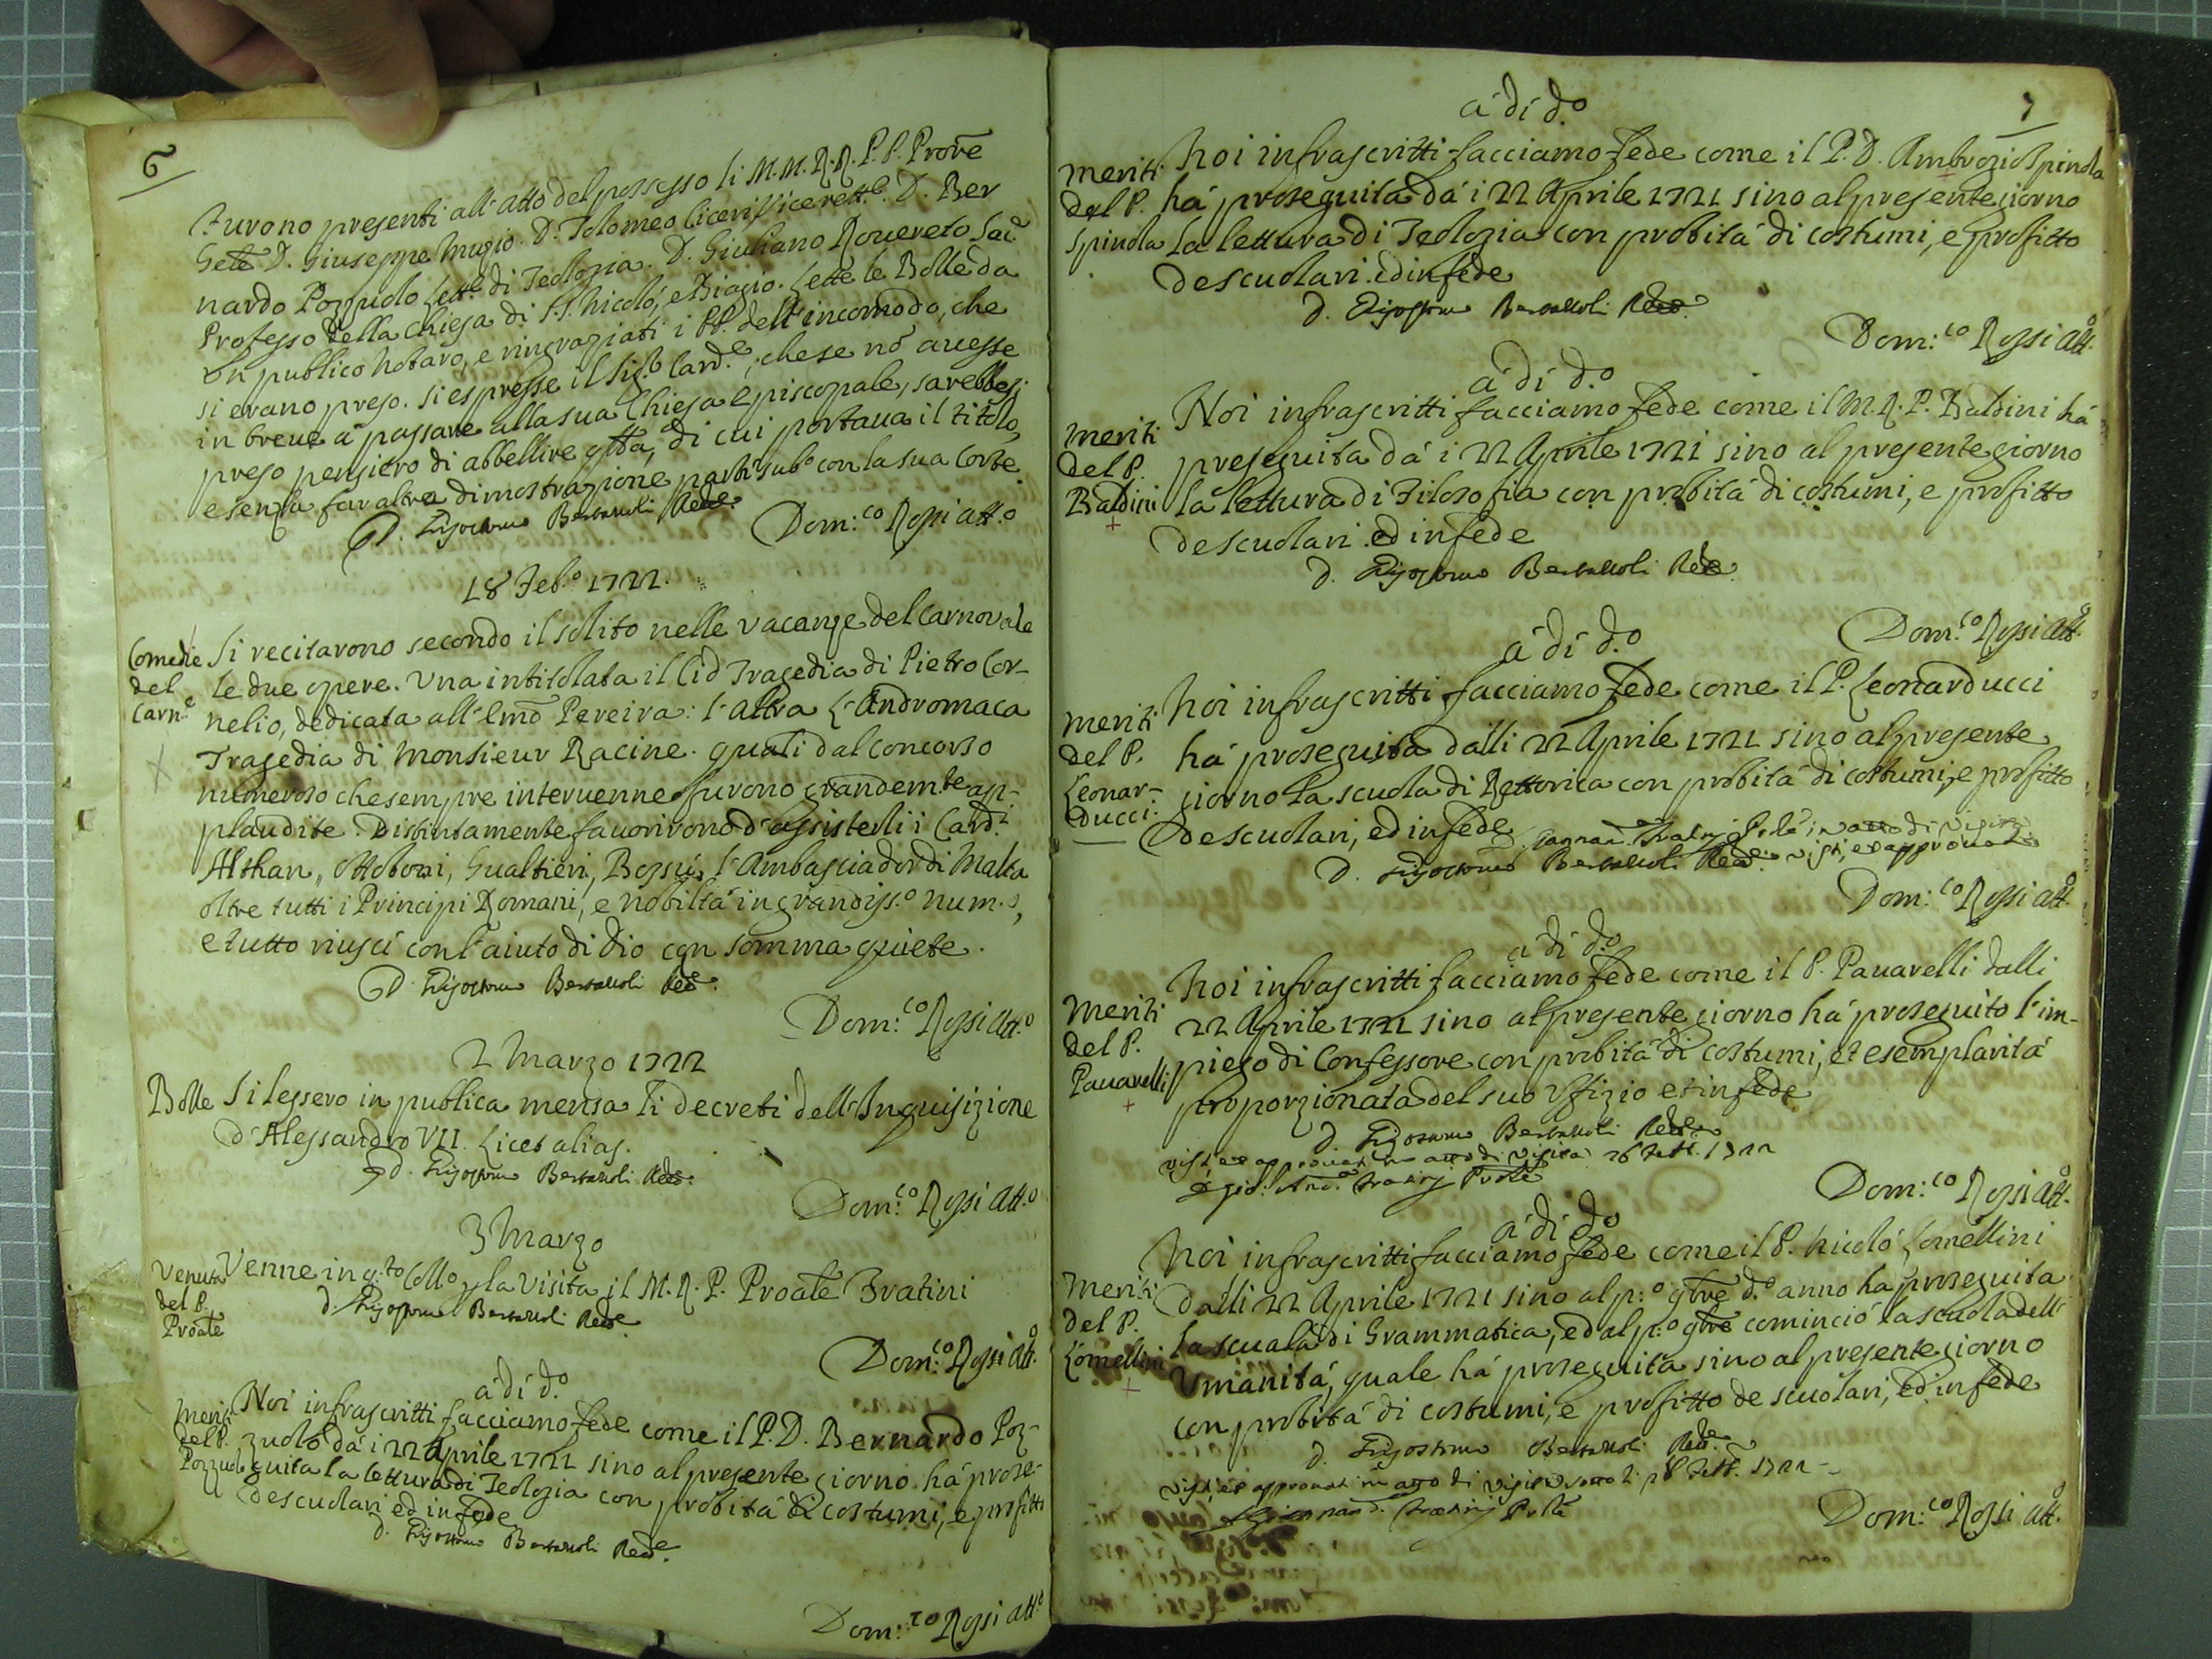 6
Furono presenti all'atto del possesso li M.M. R.R. P.P. Provle
Gete D. Giuseppe Muzio. D. Tolomeo Ciceri Vicerett.e D. Ber
nardo Pozzuolo Lett.e di Teologia. D. Giuliano Rovereto Sac.e
Professo della Chiesa di S.S. Nicolò, e Biagio. Lette le Bolle da
un publico Notaro, e ringraziati i PP. dell'incomodo, che
si erano preso. si espresse il Sig.r Card.e, che se nō avesse
in breve à passare alla sua Chiesa Episcopale, sarebbesi
preso pensiero di abbellire qta, di cui portava il titolo,
e senza far altra dimostrazione partì sub.o con la sua Corte.
D. Grisostomo Bertazzoli Rett.e
Dom:co Rossi att.o
18 Feb.o 1722.
Comedie
del
Carn.e
Si recitarono secondo il solito nelle vacanze del Carnovale
le due opere. Una intitolata il Cid Tragedia di Pietro Cor-
nelio, dedicata all'Emō Pereira: l'altra L'Andromaca
Tragedia di Monsieur Racine. quali dal concorso
numeroso che sempre intervenne furono grandemte ap-
plaudite. Distintamente favorirono d'assisterli i Card.i
Althan, Ottoboni, Gualtieri, Borsù, l'Ambasciador di Malta
oltre tutti i Principi Romani, e nobiltà in grandiss.o num.o,
e tutto riuscì con l'aiuto di Dio con somma quiete.
D. Grisostomo Bertazzoli Rett.e
Dom:co Rossi att.o
2 Marzo 1722
Bolle
Si lessero in publica mensa li decreti dell'Inquisizione
d'Alessandro VII. Licet alias.
D. Grisostomo Bertazzoli Rett.e
Dom:co Rossi att.o
3 Marzo
Venuta
del P.
Proāle
Venne in q.to Coll.o p la visita il M. R. P. Proāle Fratini
D. Grisostomo Bertazzoli Rett.e
Dom:co Rossi att.o
à dì d.o
Meriti
del P.
Pozzuolo
Noi infrascritti facciamo fede come il P. D. Bernardo Poz-
zuolo dà i 22 Aprile 1721 sino al presente giorno hà prose-
guita la lettura di Teologia con probità di costumi, e profitto
de scuolari ed in fede
D. Grisostomo Bertazzoli Rett.e
Dom:co Rossi att.o
7
à dì d.o
Meriti
del P.
Spinola
Noi infrascritti facciamo fede come il P. D. Ambrozio Spinola
hà proseguita dà i 22 Aprile 1721 sino al presente giorno
la lettura di Teologia con probità di costumi, e profitto
de scuolari. ed in fede
D. Grisostomo Bertazzoli Rett.e
Dom:co Rossi att.o
à dì d.o
Meriti
del P.
Baldini
Noi infrascritti facciamo fede come il M. R. P. Baldini hà
preseguita dà i 22 Aprile 1721 sino al presente giorno
la lettura di Filosofia con probità di costumi, e profitto
de scuolari. ed in fede
D. Grisostomo Bertazzoli Rett.e
Dom:co Rossi att.o
à dì d.o
Meriti
del P.
Leonar-
ducci
Noi infrascritti facciamo fede come il P. Leonarducci
hà proseguita dalli 22 Aprile 1721 sino al presente
giorno la scuola di Rettorica con probità di costumi, e profitto
de scuolari, ed in fede
in atto di visita
visti, ed approvati
D. Grisostomo Bertazzoli Rett.e
Dom:co Rossi att.o
à dì d.o
Meriti
del P.
Pavarelli
Noi infrascritti facciamo fede come il P. Pavarelli dalli
22 Aprile 1721 sino al presente giorno hà proseguito l'im-
piego di Confessore con probità di costumi, et esemplarità
proporzionata del suo Uffizio et in fede
D. Grisostomo Bertazzoli Rett.e
visti, ed approvati in atto di visita
Dom:co Rossi att.o
à dì d.o
Meriti
del P.
Lomellini
Noi infrascritti facciamo fede come il P. Nicolò Lomellini
dalli 22 Aprile 1721 sino al p:o 9bre d.o anno ha proseguita
la scuola di Grammatica, ed al p:o 9bre cominciò la scuola dell'
Umanità, quale hà proseguita sino al presente giorno
con probità di costumi, e profitto de scuolari, ed in fede
D. Grisostomo Bertazzoli Rett.e
visti, ed approvati in atto di visita sotto li
Dom:co Rossi att.o